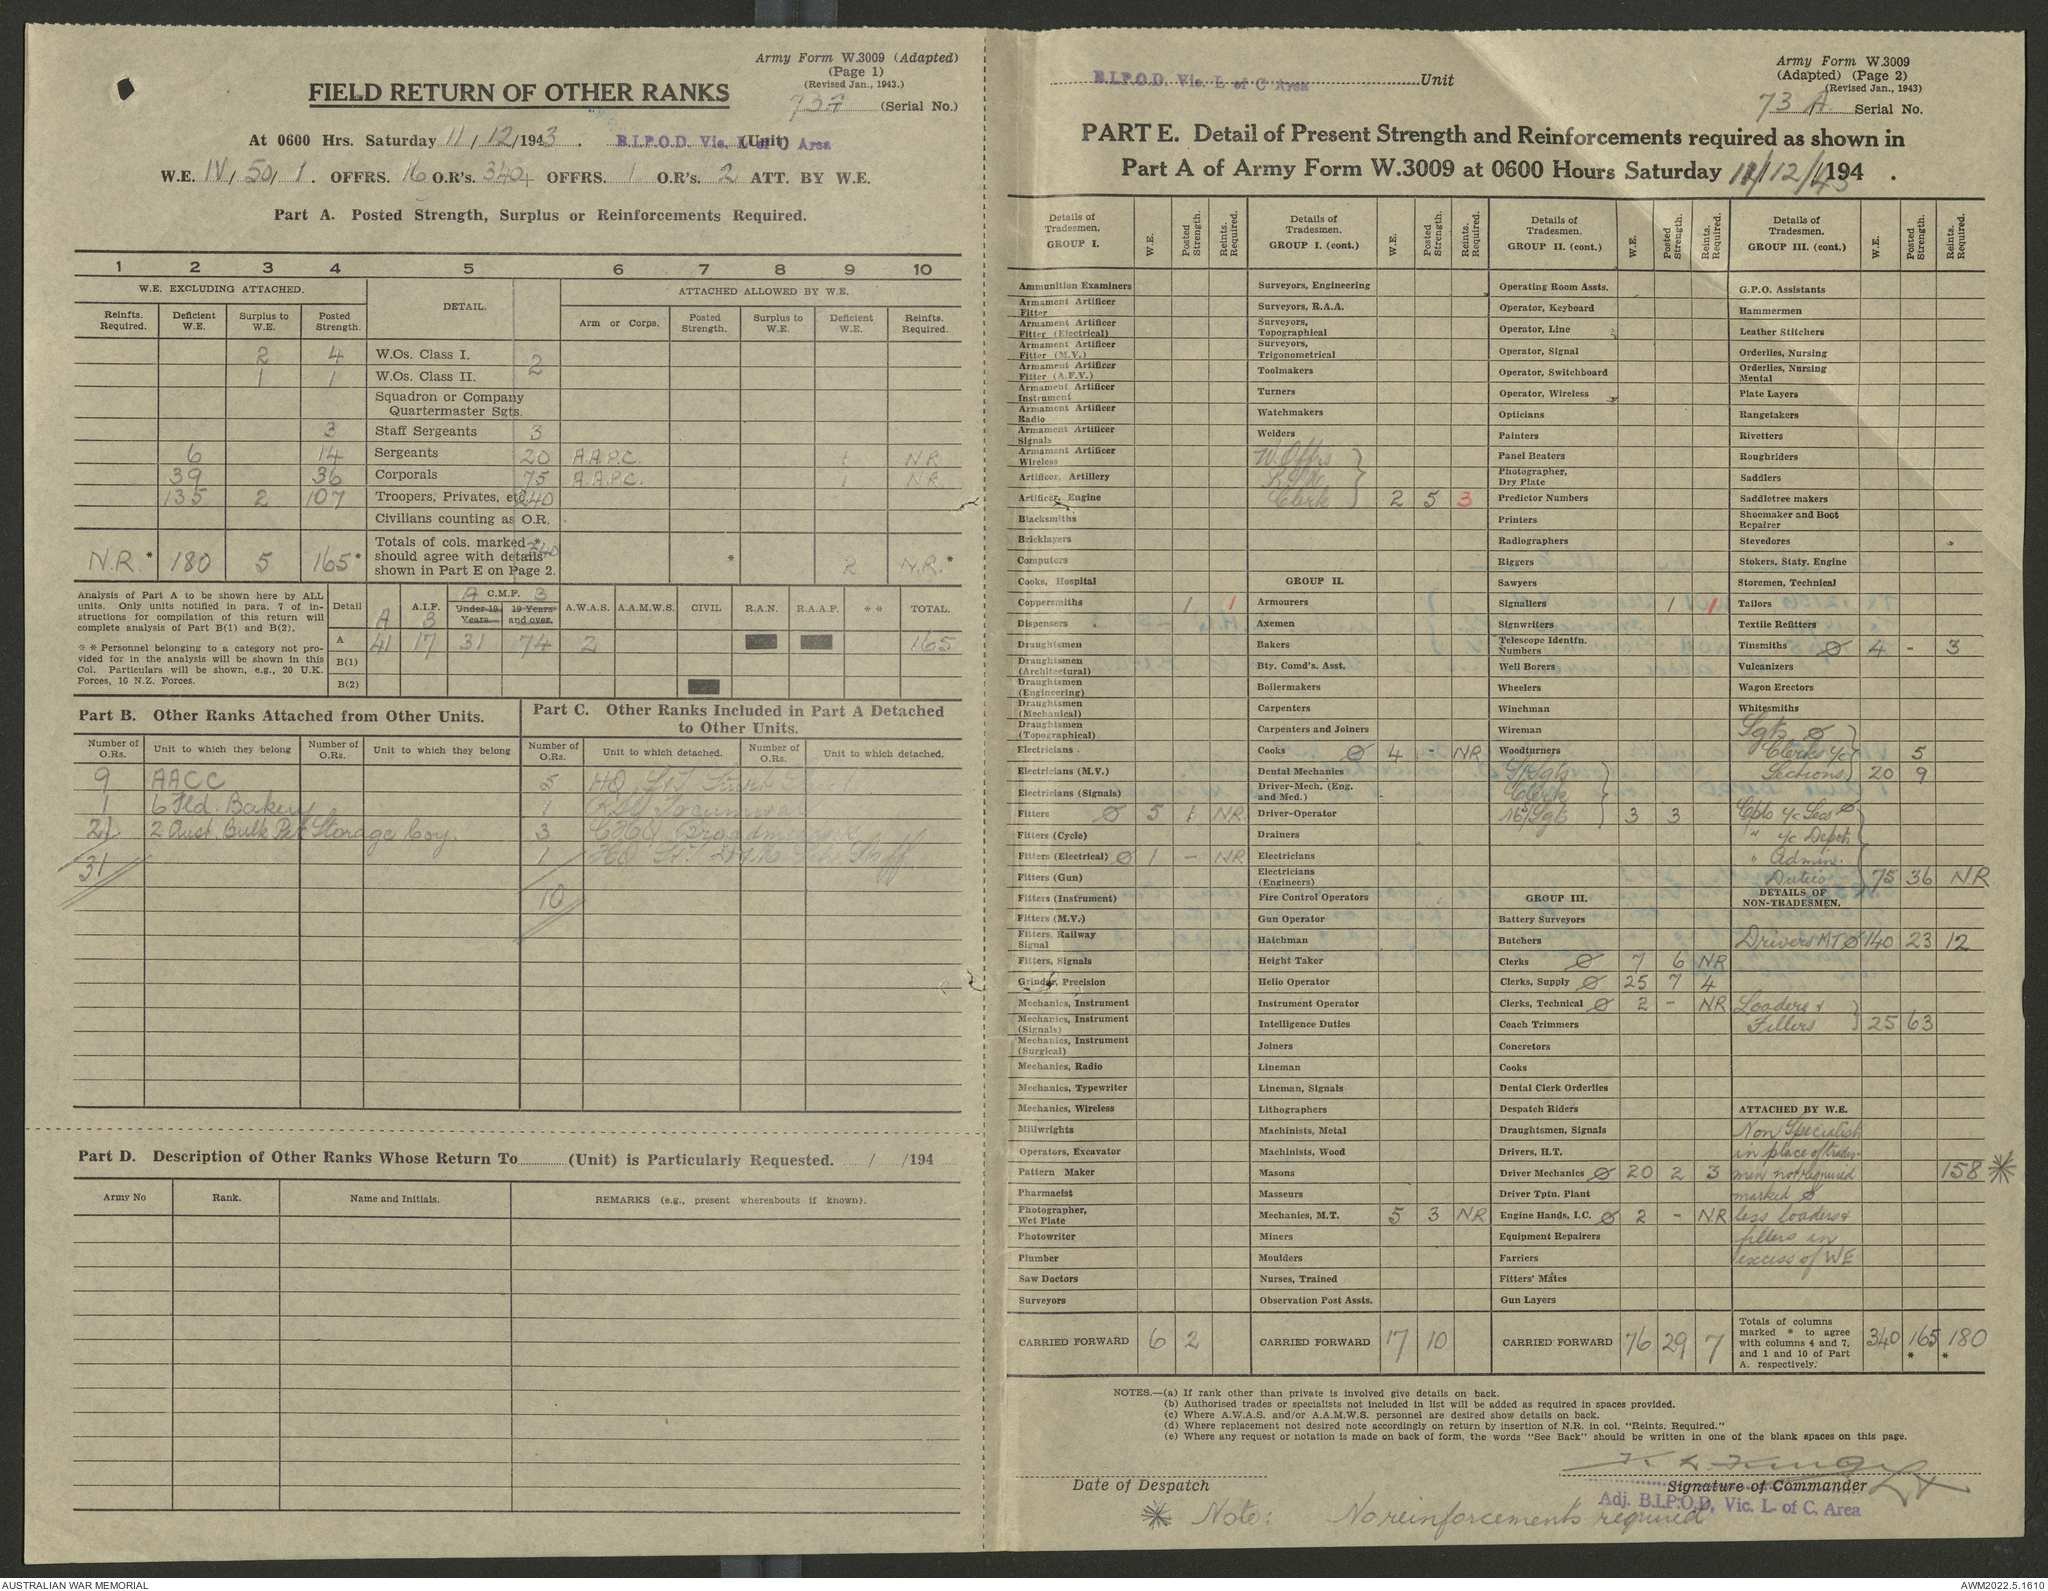 Army Form W.3009 (Adapted)
(Page 1)
(Revised Jan., 1943.)
FIELD RETURN OF OTHER RANKS
73A (Serial No.)
At 0600 Hrs. Saturday 11/12/1943. B.I.P.O.D. Vic. L of C Area (Unit)
W.E. IV/50/1. OFFRS. 16 O.R's. 340+ OFFRS. 1 O.R's. 2 ATT. BY W.E.
Part A. Posted Strength, Surplus or Reinforcements Required.
1 2 3 4 5 6 7 8 9 10
W.E. EXCLUDING ATTACHED. DETAIL. ATTACHED ALLOWED BY W.E.
Reinfts. Required. Deficient W.E. Surplus to W.E. Posted Strength. Arm or Corps. Posted Strength. Surplus to W.E. Deficient W.E. Reinfts. Required.
2 4 W.Os. Class I. 2
1 1 W.Os. Class II.
Squadron or Company
Quartermaster Sgts.
3 Staff Sergeants 3
6 14 Sergeants 20 A.A.P.C. 1 N.R.
39 36 Corporals 75 A.A.P.C. 1 N.R.
135 2 107 Troopers, Privates, etc. 240
Civilians counting as O.R.
N.R.* 180 5 165* Totals of cols. marked * should agree with details shown in Part E on Page 2. 340 * 2 N.R.*
Analysis of Part A to be shown here by ALL units. Only units notified in para. 7 of instructions for compilation of this return will complete analysis of Part B(1) and B(2).
* * Personnel belonging to a category not provided for in the analysis will be shown in this Col. Particulars will be shown, e.g., 20 U.K. Forces, 10 N.Z. Forces.
Detail A.I.F. A B C.M.F. A B Under 19 Years. 19 Years and over. A.W.A.S. A.A.M.W.S. CIVIL R.A.N. R.A.A.F. * * TOTAL.
A 41 17 31 74 2 165
B(1)
B(2)
Part B. Other Ranks Attached from Other Units.
Number of O.Rs. Unit to which they belong Number of O.Rs. Unit to which they belong
9 AACC
1 6 Fld. Bakery
21 2 Aust. Bulk Pet Storage Coy.
31
Part C. Other Ranks Included in Part A Detached to Other Units.
Number of O.Rs. Unit to which detached. Number of O.Rs. Unit to which detached.
5 HQ S&T
1 Tocumwal
3 CHQ Broadmeadows
1 HQ Staff
10
Part D. Description of Other Ranks Whose Return To (Unit) is Particularly Requested. / /194
Army No Rank. Name and Initials. REMARKS (e.g., present whereabouts if known).
B.I.P.O.D. Vic. L of C Area Unit
Army Form W.3009
(Adapted) (Page 2)
(Revised Jan., 1943)
73 A Serial No.
PART E. Detail of Present Strength and Reinforcements required as shown in
Part A of Army Form W.3009 at 0600 Hours Saturday 11/12/43 194 .
Details of Tradesmen. GROUP I. W.E. Posted Strength. Reints. Required.
Ammunition Examiners
Armament Artificer Fitter
Armament Artificer Fitter (Electrical)
Armament Artificer Fitter (M.V.)
Armament Artificer Fitter (A.F.V.)
Armament Artificer Instrument
Armament Artificer Radio
Armament Artificer Signals
Armament Artificer Wireless
Artificer, Artillery
Artificer, Engine
Blacksmiths
Bricklayers
Computers
Cooks, Hospital
Coppersmiths 1 1
Dispensers
Draughtsmen
Draughtsmen (Architectural)
Draughtsmen (Engineering)
Draughtsmen (Mechanical)
Draughtsmen (Topographical)
Electricians
Electricians (M.V.)
Electricians (Signals)
Fitters Ø 5 1 NR
Fitters (Cycle)
Fitters (Electrical) Ø 1 - NR
Fitters (Gun)
Fitters (Instrument)
Fitters (M.V.)
Fitters, Railway Signal
Fitters, Signals
Grinder, Precision
Mechanics, Instrument
Mechanics, Instrument (Signals)
Mechanics, Instrument (Surgical)
Mechanics, Radio
Mechanics, Typewriter
Mechanics, Wireless
Millwrights
Operators, Excavator
Pattern Maker
Pharmacist
Photographer, Wet Plate
Photowriter
Plumber
Saw Doctors
Surveyors
CARRIED FORWARD 6 2
Details of Tradesmen. GROUP I. (cont.) W.E. Posted Strength. Reints. Required.
Surveyors, Engineering
Surveyors, R.A.A.
Surveyors, Topographical
Surveyors, Trigonometrical
Toolmakers
Turners
Watchmakers
Welders
W. Offrs
Clerk 2 5 3
GROUP II.
Armourers
Axemen
Bakers
Bty. Comd's. Asst.
Boilermakers
Carpenters
Carpenters and Joiners
Cooks Ø 4 - NR
Dental Mechanics
Driver-Mech. (Eng. and Med.)
Driver-Operator
Drainers
Electricians
Electricians (Engineers)
Fire Control Operators
Gun Operator
Hatchman
Height Taker
Helio Operator
Instrument Operator
Intelligence Duties
Joiners
Lineman
Lineman, Signals
Lithographers
Machinists, Metal
Machinists, Wood
Masons
Masseurs
Mechanics, M.T. 5 3 NR
Miners
Moulders
Nurses, Trained
Observation Post Assts.
CARRIED FORWARD 17 10
Details of Tradesmen. GROUP II. (cont.) W.E. Posted Strength. Reints. Required.
Operating Room Assts.
Operator, Keyboard
Operator, Line
Operator, Signal
Operator, Switchboard
Operator, Wireless
Opticians
Painters
Panel Beaters
Photographer, Dry Plate
Predictor Numbers
Printers
Radiographers
Riggers
Sawyers
Signallers 1 1
Signwriters
Telescope Identfn. Numbers
Well Borers
Wheelers
Winchman
Wireman
Woodturners
S/Sgts
Clerk
S/Sgts 3 3
GROUP III.
Battery Surveyors
Butchers
Clerks Ø 7 6 NR
Clerks, Supply Ø 25 7 4
Clerks, Technical Ø 2 - NR
Coach Trimmers
Concretors
Cooks
Dental Clerk Orderlies
Despatch Riders
Draughtsmen, Signals
Drivers, H.T.
Driver Mechanics Ø 20 2 3
Driver Tptn. Plant
Engine Hands, I.C. Ø 2 - NR
Equipment Repairers
Farriers
Fitters' Mates
Gun Layers
CARRIED FORWARD 76 29 7
Details of Tradesmen. GROUP III. (cont.) W.E. Posted Strength. Reints. Required.
G.P.O. Assistants
Hammermen
Leather Stitchers
Orderlies, Nursing
Orderlies, Nursing Mental
Plate Layers
Rangetakers
Rivetters
Roughriders
Saddlers
Saddletree makers
Shoemaker and Boot Repairer
Stevedores
Stokers, Staty. Engine
Storemen, Technical
Tailors
Textile Refitters
Tinsmiths Ø 4 - 3
Vulcanizers
Wagon Erectors
Whitesmiths
Sgts Ø
Clerks i/c 5
Sections 20 9
Cpls i/c Secs Ø
" i/c Depots
" Admin.
Duties 75 36 NR
DETAILS OF NON-TRADESMEN.
Drivers MT Ø 140 23 12
Loaders &
Fillers 25 63
ATTACHED BY W.E.
Non Specialists
in place of trades-
men not required 158 *
marked Ø
less loaders &
fillers in
excess of WE
Totals of columns marked * to agree with columns 4 and 7, and 1 and 10 of Part A. respectively. 340 165* 180*
NOTES.—(a) If rank other than private is involved give details on back.
(b) Authorised trades or specialists not included in list will be added as required in spaces provided.
(c) Where A.W.A.S. and/or A.A.M.W.S. personnel are desired show details on back.
(d) Where replacement not desired note accordingly on return by insertion of N.R. in col. "Reints. Required."
(e) Where any request or notation is made on back of form, the words "See Back" should be written in one of the blank spaces on this page.
Date of Despatch
Signature of Commander
Adj. B.I.P.O.D. Vic. L. of C. Area
* Note: No reinforcements required
AUSTRALIAN WAR MEMORIAL
AWM2022.5.1610